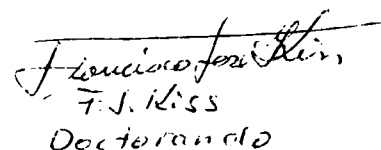 Francisco José Kiss
F. J. Kiss
Doctorando